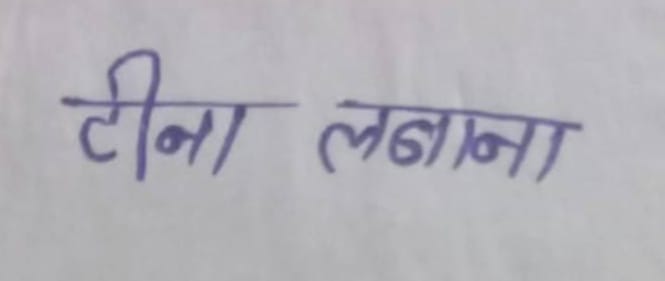 टीना लबाना